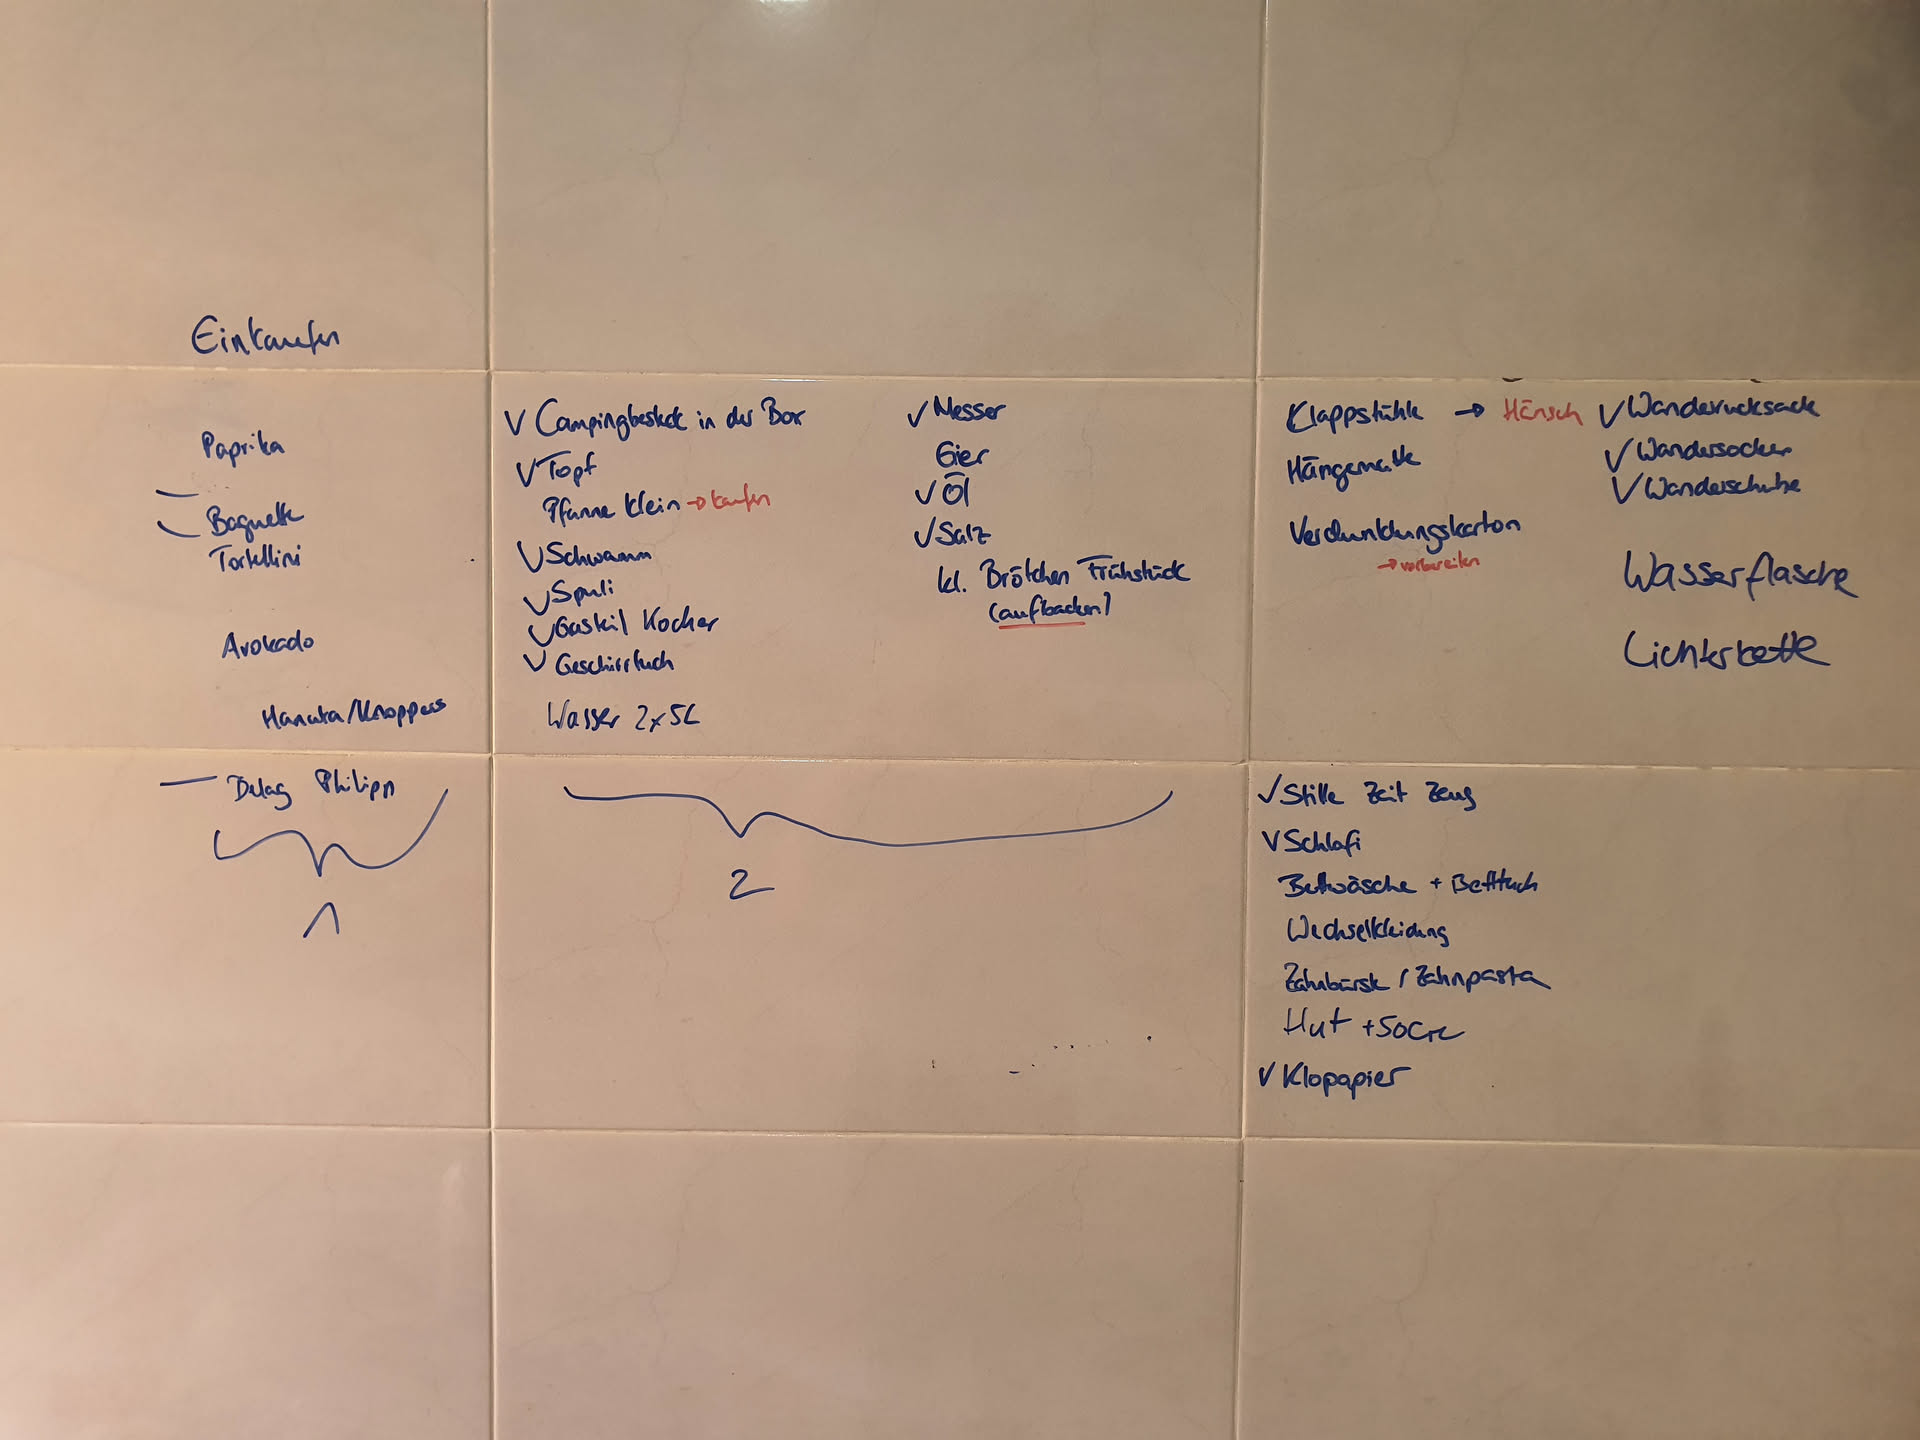 Einkaufen
Paprika
Baguette
Tortellini
Avokado
Hanuta/Knoppers
Belag Philipp
1
✓ Campingbesteck in der Box
✓ Topf
Pfanne klein → kaufen
✓ Schwamm
✓ Spuli
✓ Gaskil Kocher
✓ Geschirrtuch
Wasser 2x5L
✓ Messer
Eier
✓ Öl
✓ Salz
kl. Brötchen Frühstück
(aufbacken)
2
Klappstühle → Hänsch
Hängematte
Verdunklungskarton
→ vorbereiten
✓ Wanderrucksack
✓ Wandersocken
✓ Wanderschuhe
Wasserflasche
Lichterkette
✓ Stille Zeit Zeug
✓ Schlafi
Bettwäsche + Betttuch
Wechselkleidung
Zahnbürste / Zahnpasta
Hut + SoCre
✓ Klopapier